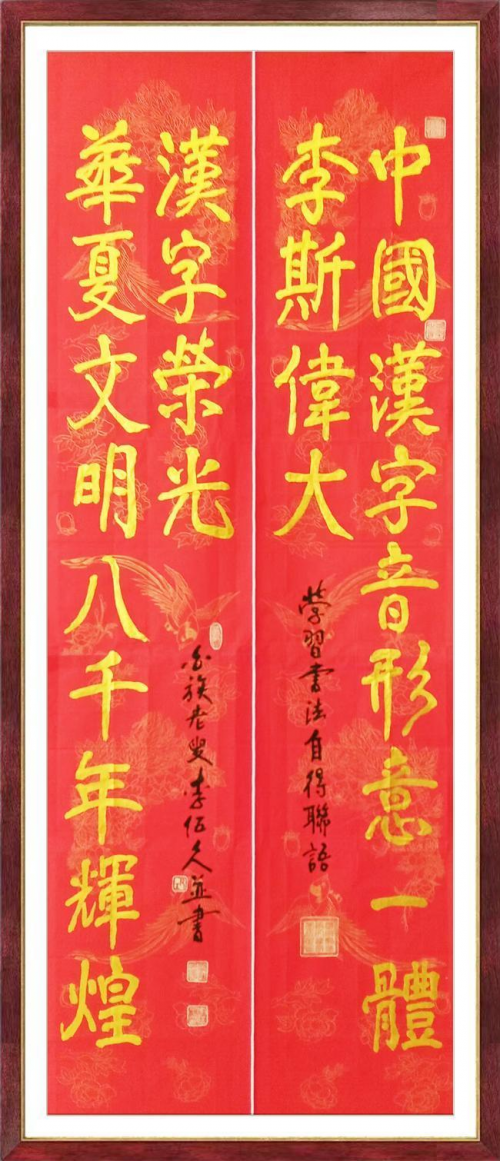 中國漢字音形意一體
李斯偉大
學習書法自得聯語
漢字榮光
華夏文明八千年輝煌
白族老叟李伍久並書